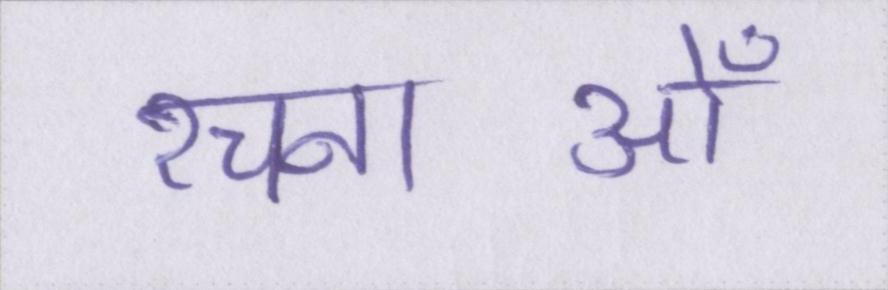 रचना ओँ